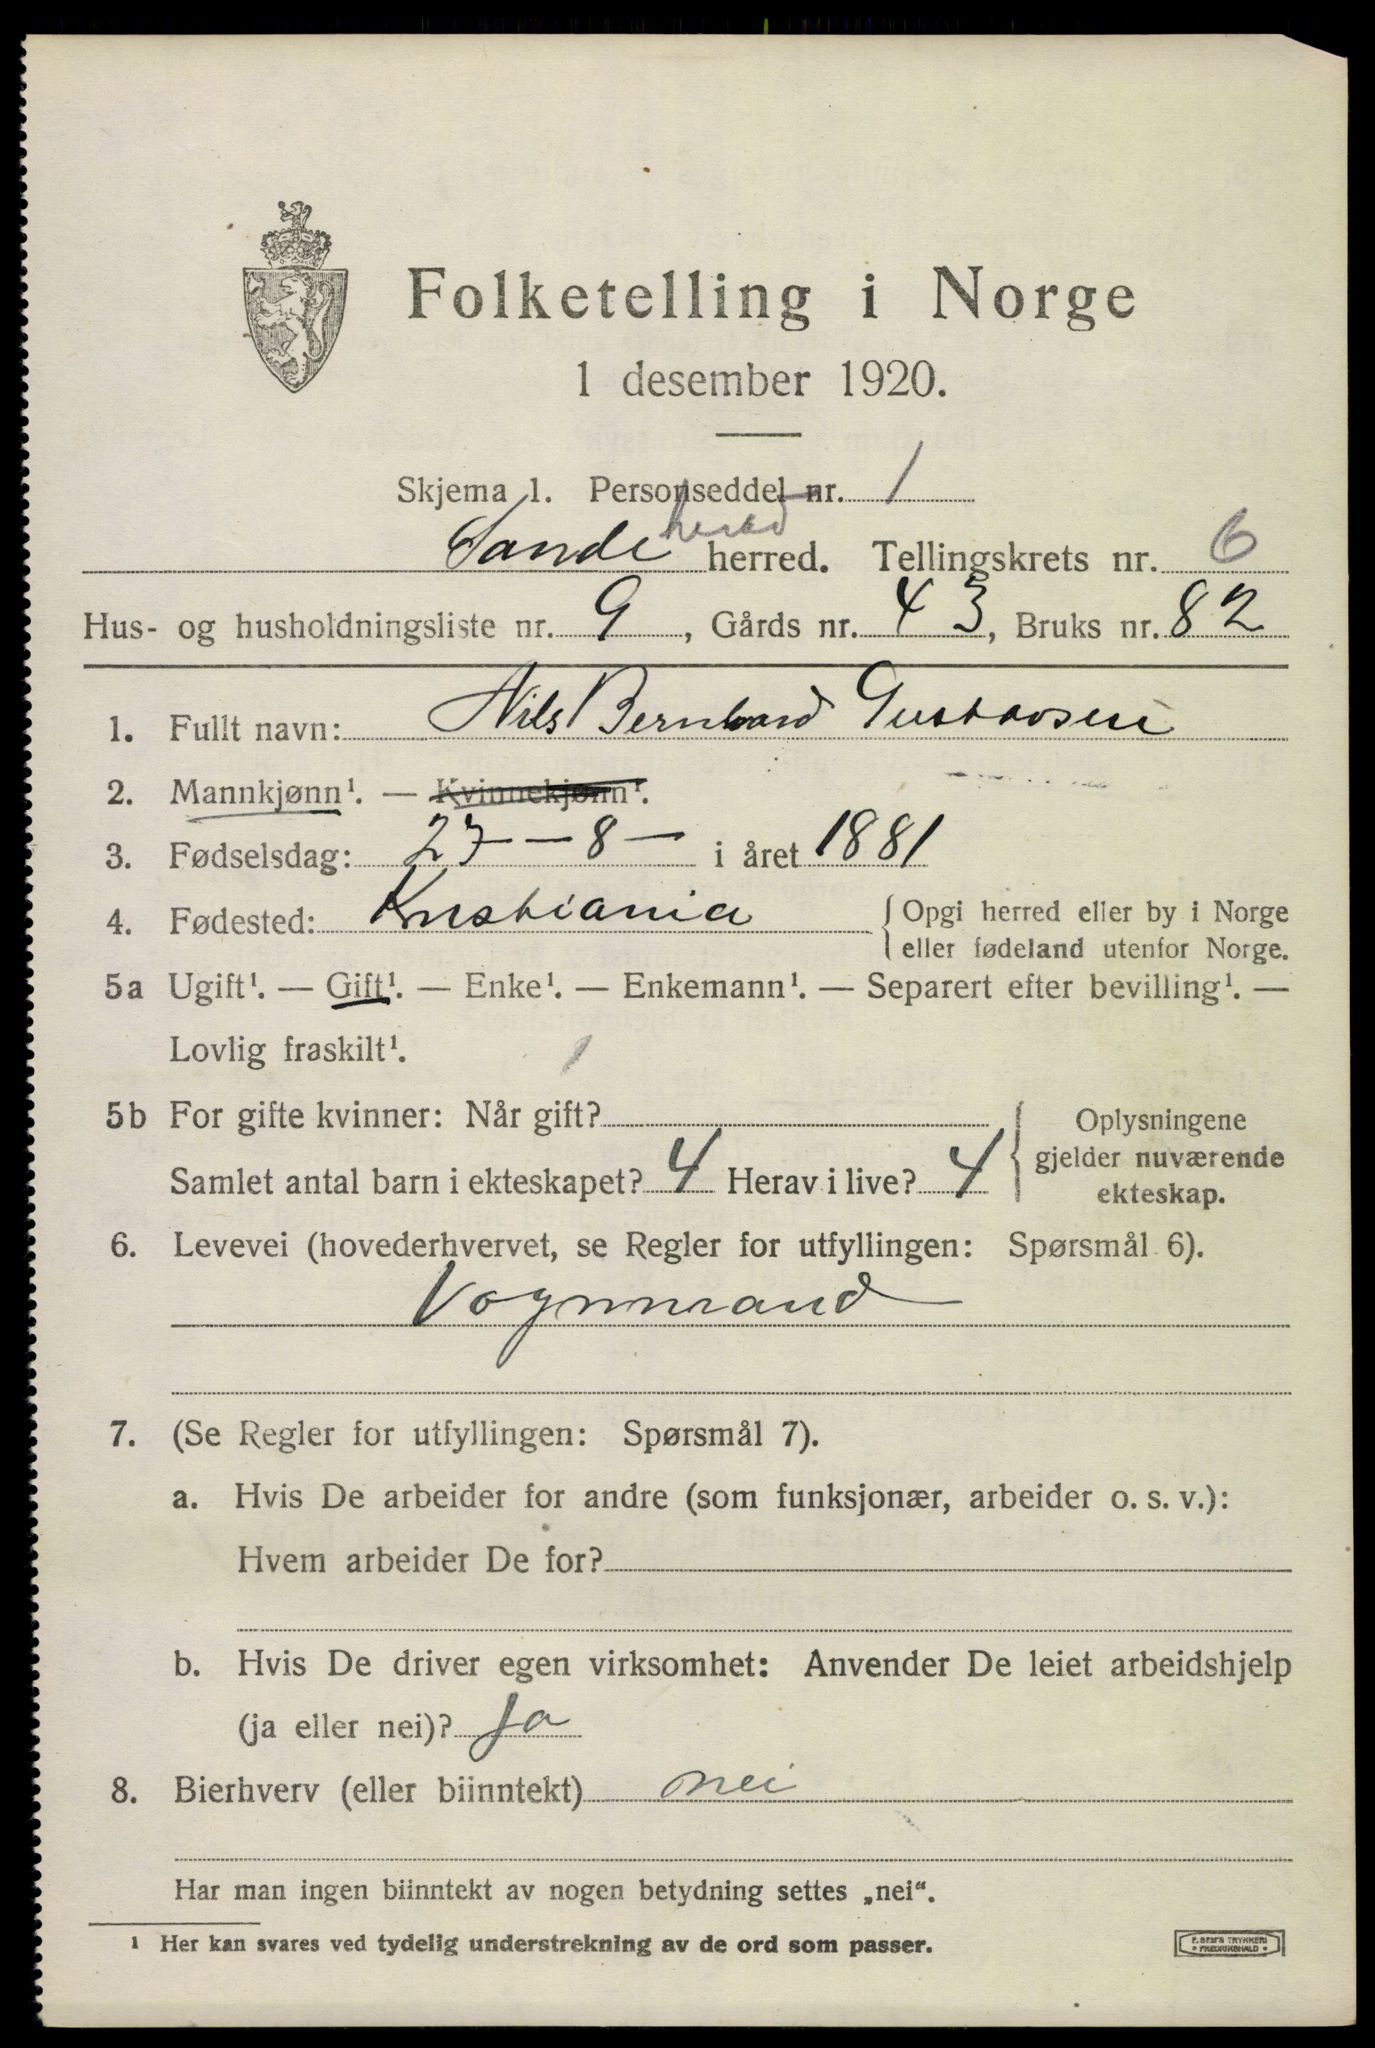 Folketelling i Norge
1 desember 1920.
Skjema 1. Personseddel nr. 1
Sande herred herred. Tellingskrets nr. 6
Hus- og husholdningsliste nr. 9, Gårds nr. 43, Bruks nr. 82
1. Fullt navn: Nils Bernhard Gustavsen
2. Mannkjønn¹. — Kvinnekjønn¹.
3. Fødselsdag: 27 — 8 — i året 1881
4. Fødested: Kristiania { Opgi herred eller by i Norge
eller fødeland utenfor Norge.
5a Ugift¹. — Gift¹. — Enke¹. — Enkemann¹. — Separert efter bevilling¹. —
Lovlig fraskilt¹. 1
5b For gifte kvinner: Når gift?
Samlet antal barn i ekteskapet? 4 Herav i live? 4
Oplysningene
gjelder nuværende
ekteskap.
6. Levevei (hovederhvervet, se Regler for utfyllingen: Spørsmål 6).
Vognmand
7. (Se Regler for utfyllingen: Spørsmål 7).
a. Hvis De arbeider for andre (som funksjonær, arbeider o. s. v.):
Hvem arbeider De for?
b. Hvis De driver egen virksomhet: Anvender De leiet arbeidshjelp
(ja eller nei)? Ja
8. Bierhverv (eller biinntekt) nei
Har man ingen biinntekt av nogen betydning settes „nei“.
¹ Her kan svares ved tydelig understrekning av de ord som passer.
F. SEMS TRYKKERI
FREDRIKSHALD